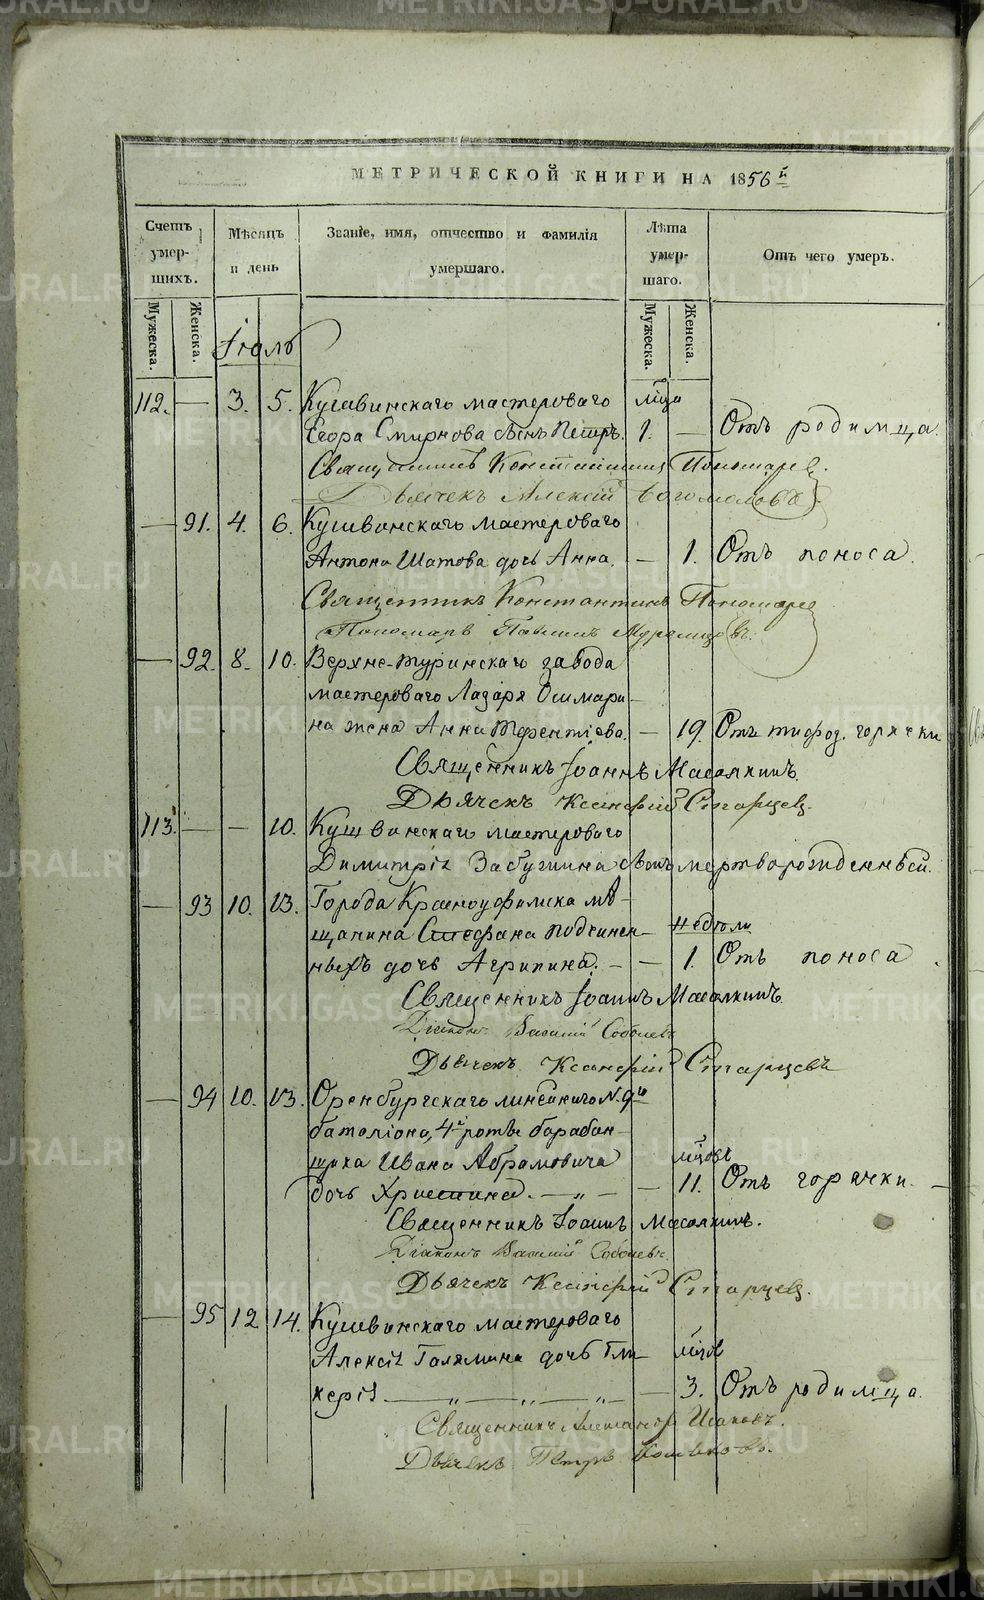 МЕТРИЧЕСКОЙ КНИГИ НА 1856 й
Счетъ умер- шихъ.
Мѣсяцъ и день
Званіе, имя, отчество и фамилія умершаго.
Лѣта умер- шаго.
Отъ чего умеръ.
Мужеска.
Женска.
Мужеска.
Женска.
Іюль
112. — 3. 5. Кушвинскаго мастероваго
Егора Смирнова сынъ Петръ. 1. — Отъ родимца.
Священникъ Константинъ Пономарев.
Дьячекъ Алексій Богомоловъ
— 91. 4. 6. Кушвинскаго мастероваго
Антона Шатова дочь Анна. — 1. Отъ поноса.
Священникъ Константинъ Пономарев
Пономарь
— 92. 8. 10. Верхне-туринскаго завода
мастероваго Лазаря Ошмари-
на жена Анна Терентіева. — 19. Отъ тифод. горячки
Священникъ Іоаннъ Масалкинъ.
Дьячекъ Ксенофій Старцев.
113. — — 10. Кушвинскаго мастероваго
Димитрія Забугина сынъ мертворожденный.
— 93 10. 13. Города Красноуфимска мѣ-
щанина Стефана Подкинен- недѣли
ныхъ дочь Агрипина. — — 1. Отъ поноса.
Священникъ Іоаннъ Масалкинъ.
Діаконъ Василій Соболевъ
Дьячекъ Ксенофій Старцевъ
— 94 10. 13. Оренбургскаго линейнаго N. 9го
баталіона, 4й роты барабан-
щика Ивана Абрамовича мѣсцовъ
дочь Христина. — „ — — 11. Отъ горячки. —
Священникъ Іоаннъ Масалкинъ.
Діаконъ Василій Соболевъ.
Дьячекъ Ксенофій Старцев.
— 95 12 14. Кушвинскаго мастероваго
Алексія Галямина дочь Гли- мѣсцов
керія — „ — „ — „ — 3. Отъ родимца.
Священникъ Александр
Дьячекъ Петръ
METRIKI.GASO-URAL.RU